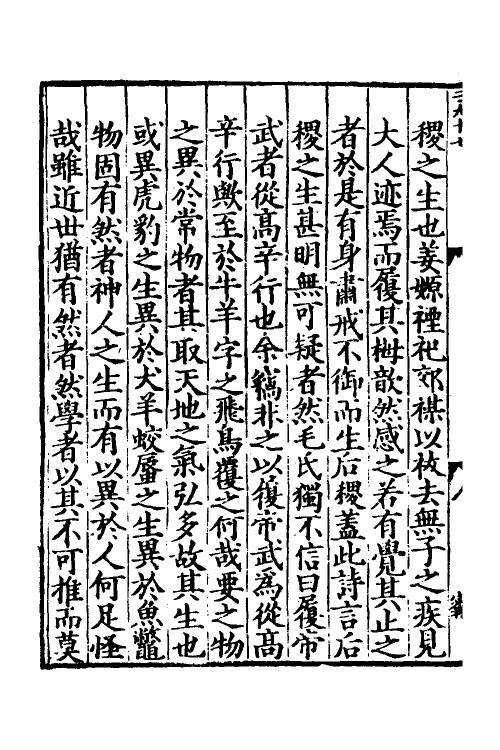 稷之生也姜嫄禋祀郊禖以祓去無子之疾見
大人迹焉而履其栂歆然感之若有覺其止之
者於是有身肅戒不御而生后稷蓋此詩言后
稷之生甚明無可疑者然毛氏獨不信曰履帝
武者從高辛行也余竊非之以復帝武爲從高
辛行歟至於牛羊字之飛鳥覆之何哉要之物
之異於常物者其取天地之氣弘多故其生也
或異虎豹之生異於犬羊蛟蜃之生異於魚鼈
物固有然者神人之生而有以異於人何足怪
哉雖近世猶有然者然學者以其不可推而莫